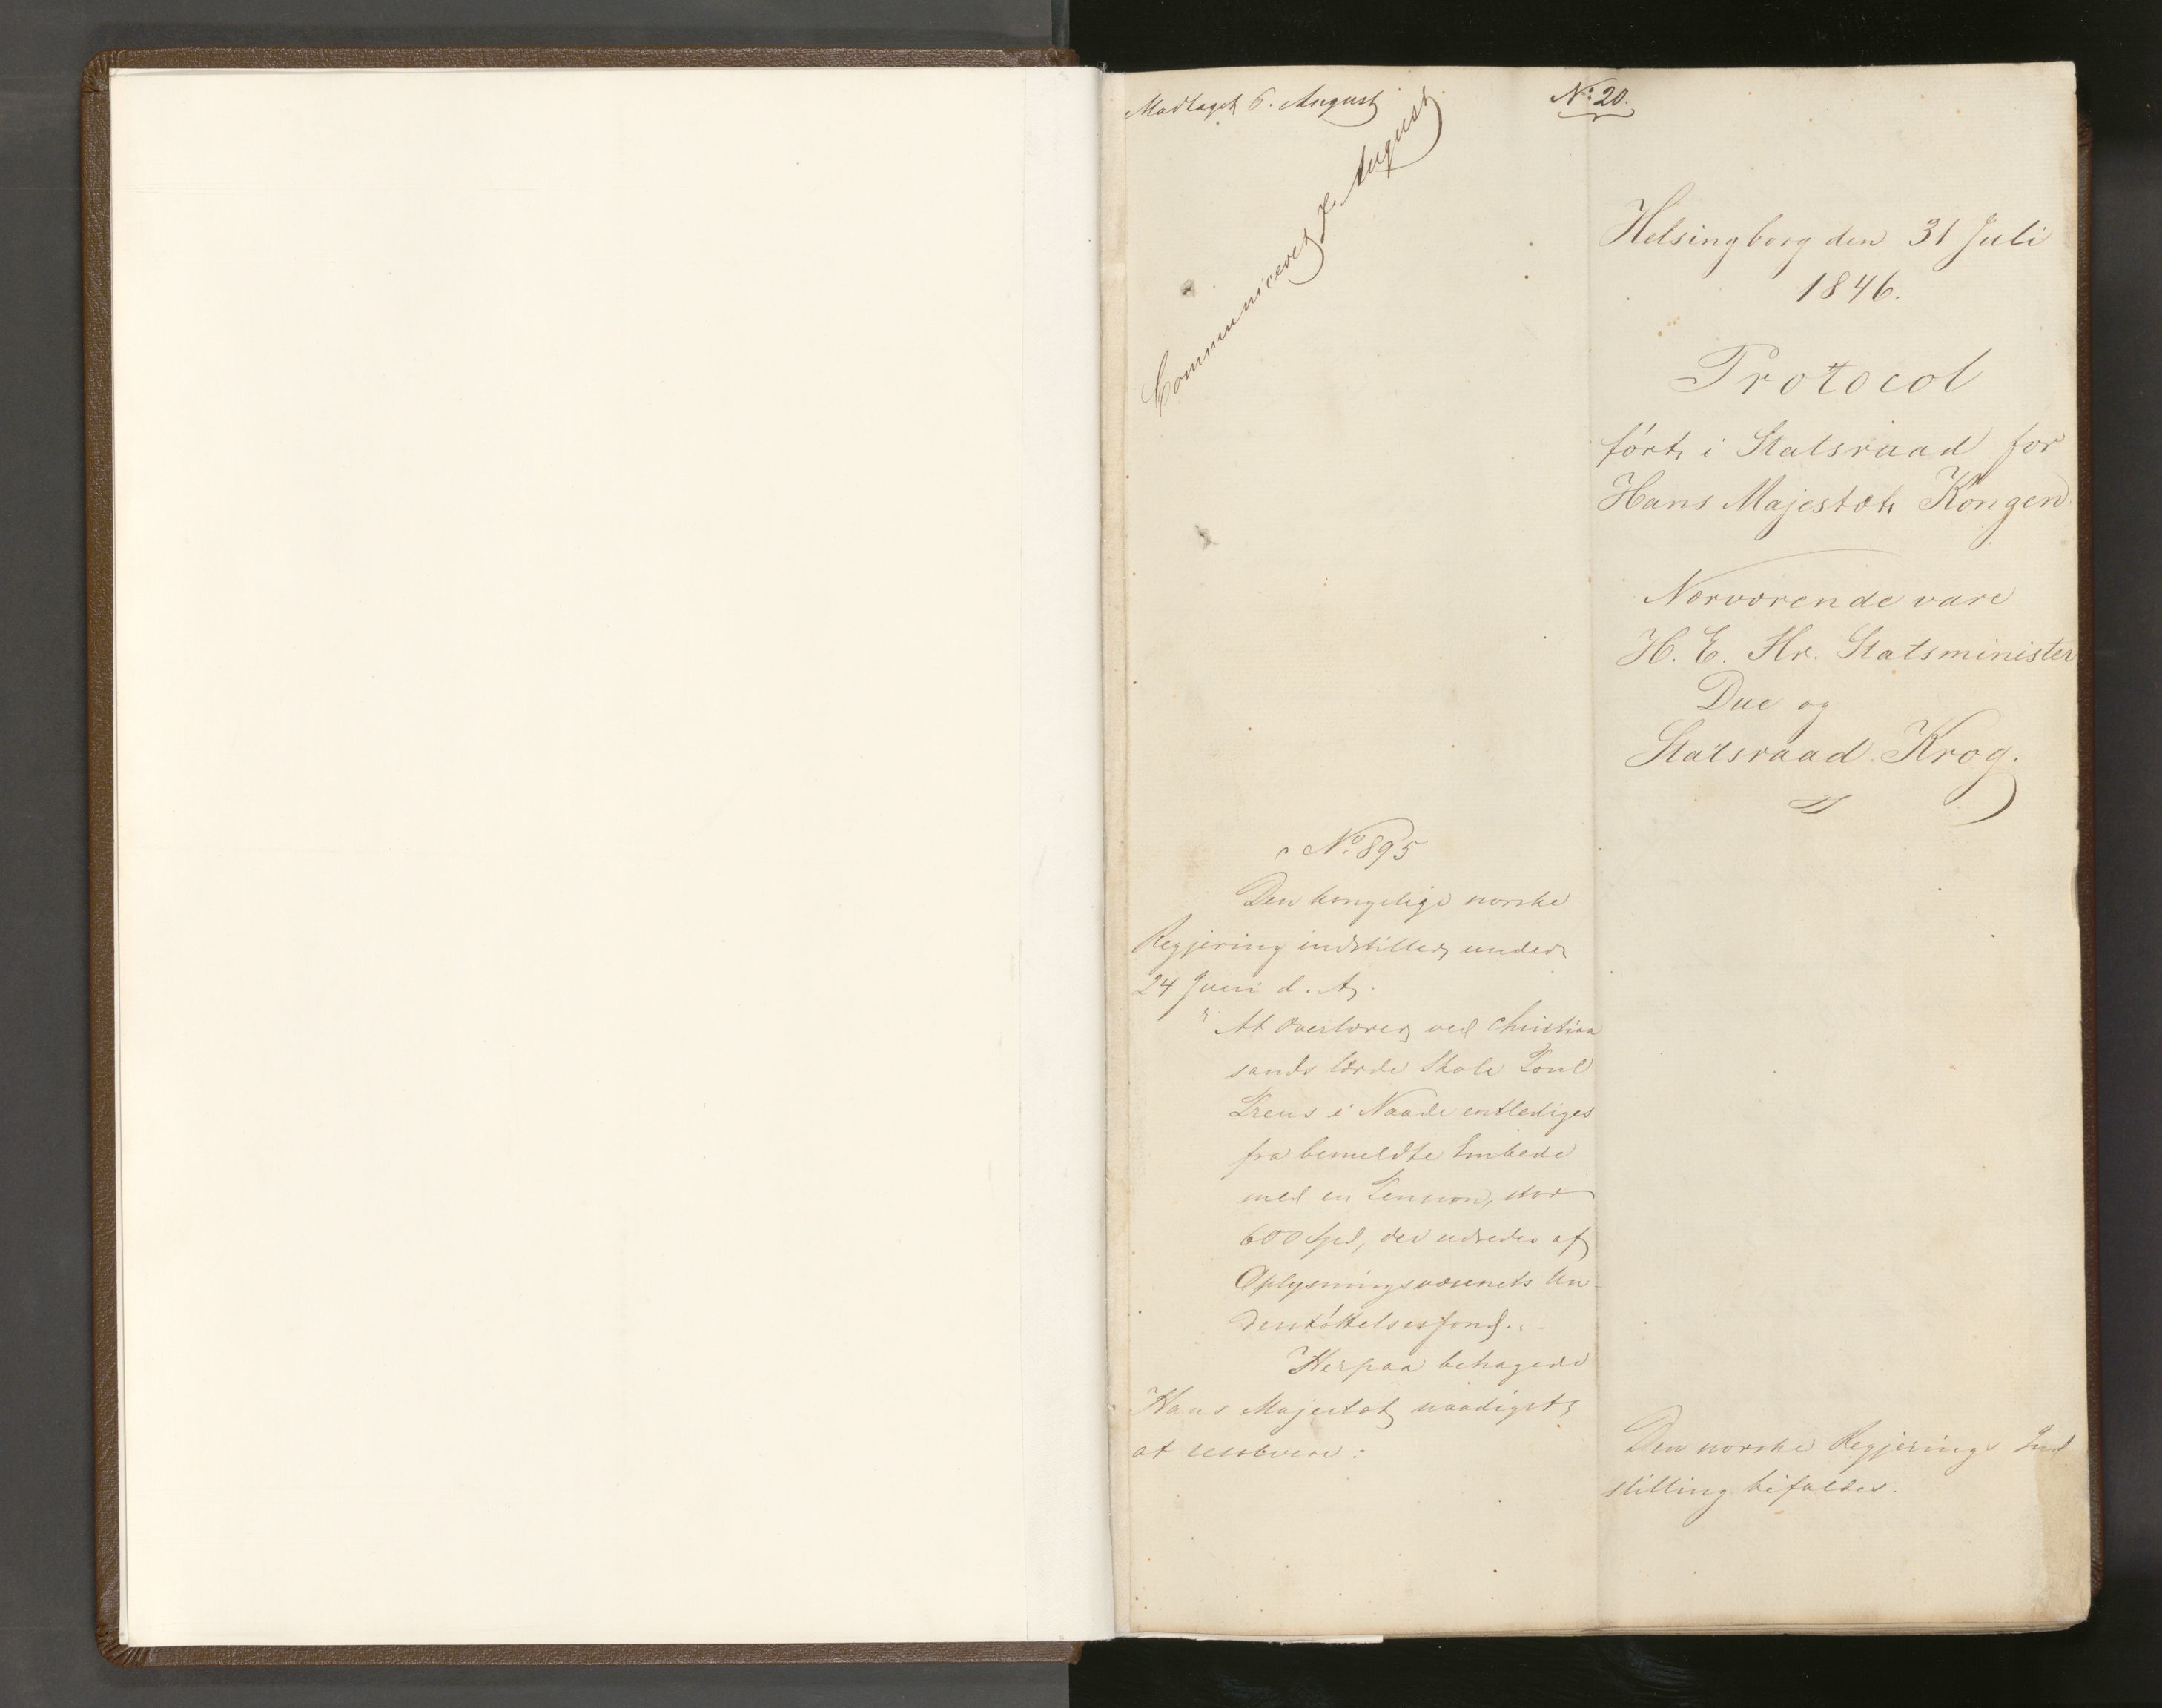 Modtaget 6. August
Communiceret 7. August
No: 20.
Helsingborg den 31 Juli
1846.
Protocol
ført i Statsraad for
Hans Majestæt Kongen
Nærværende vare
H. E. Hr. Statsminister
Due og
Statsraad Krog.
No. 895
Den kongelige norske
Regjering indstiller under
24 Juni d. A.
"At Overlærer ved Christian
sands lærde Skole Poul
i Naade entlediges
fra bemeldte Embede
med en Pension, stor
600 Spd, der udredes af
Oplysningsvæsenets Un-
derstøttelsesfond.
Herpaa behagede
Hans Majestæt naadigst
at resolvere:
Den norske Regjerings Ind
stilling bifaldes.